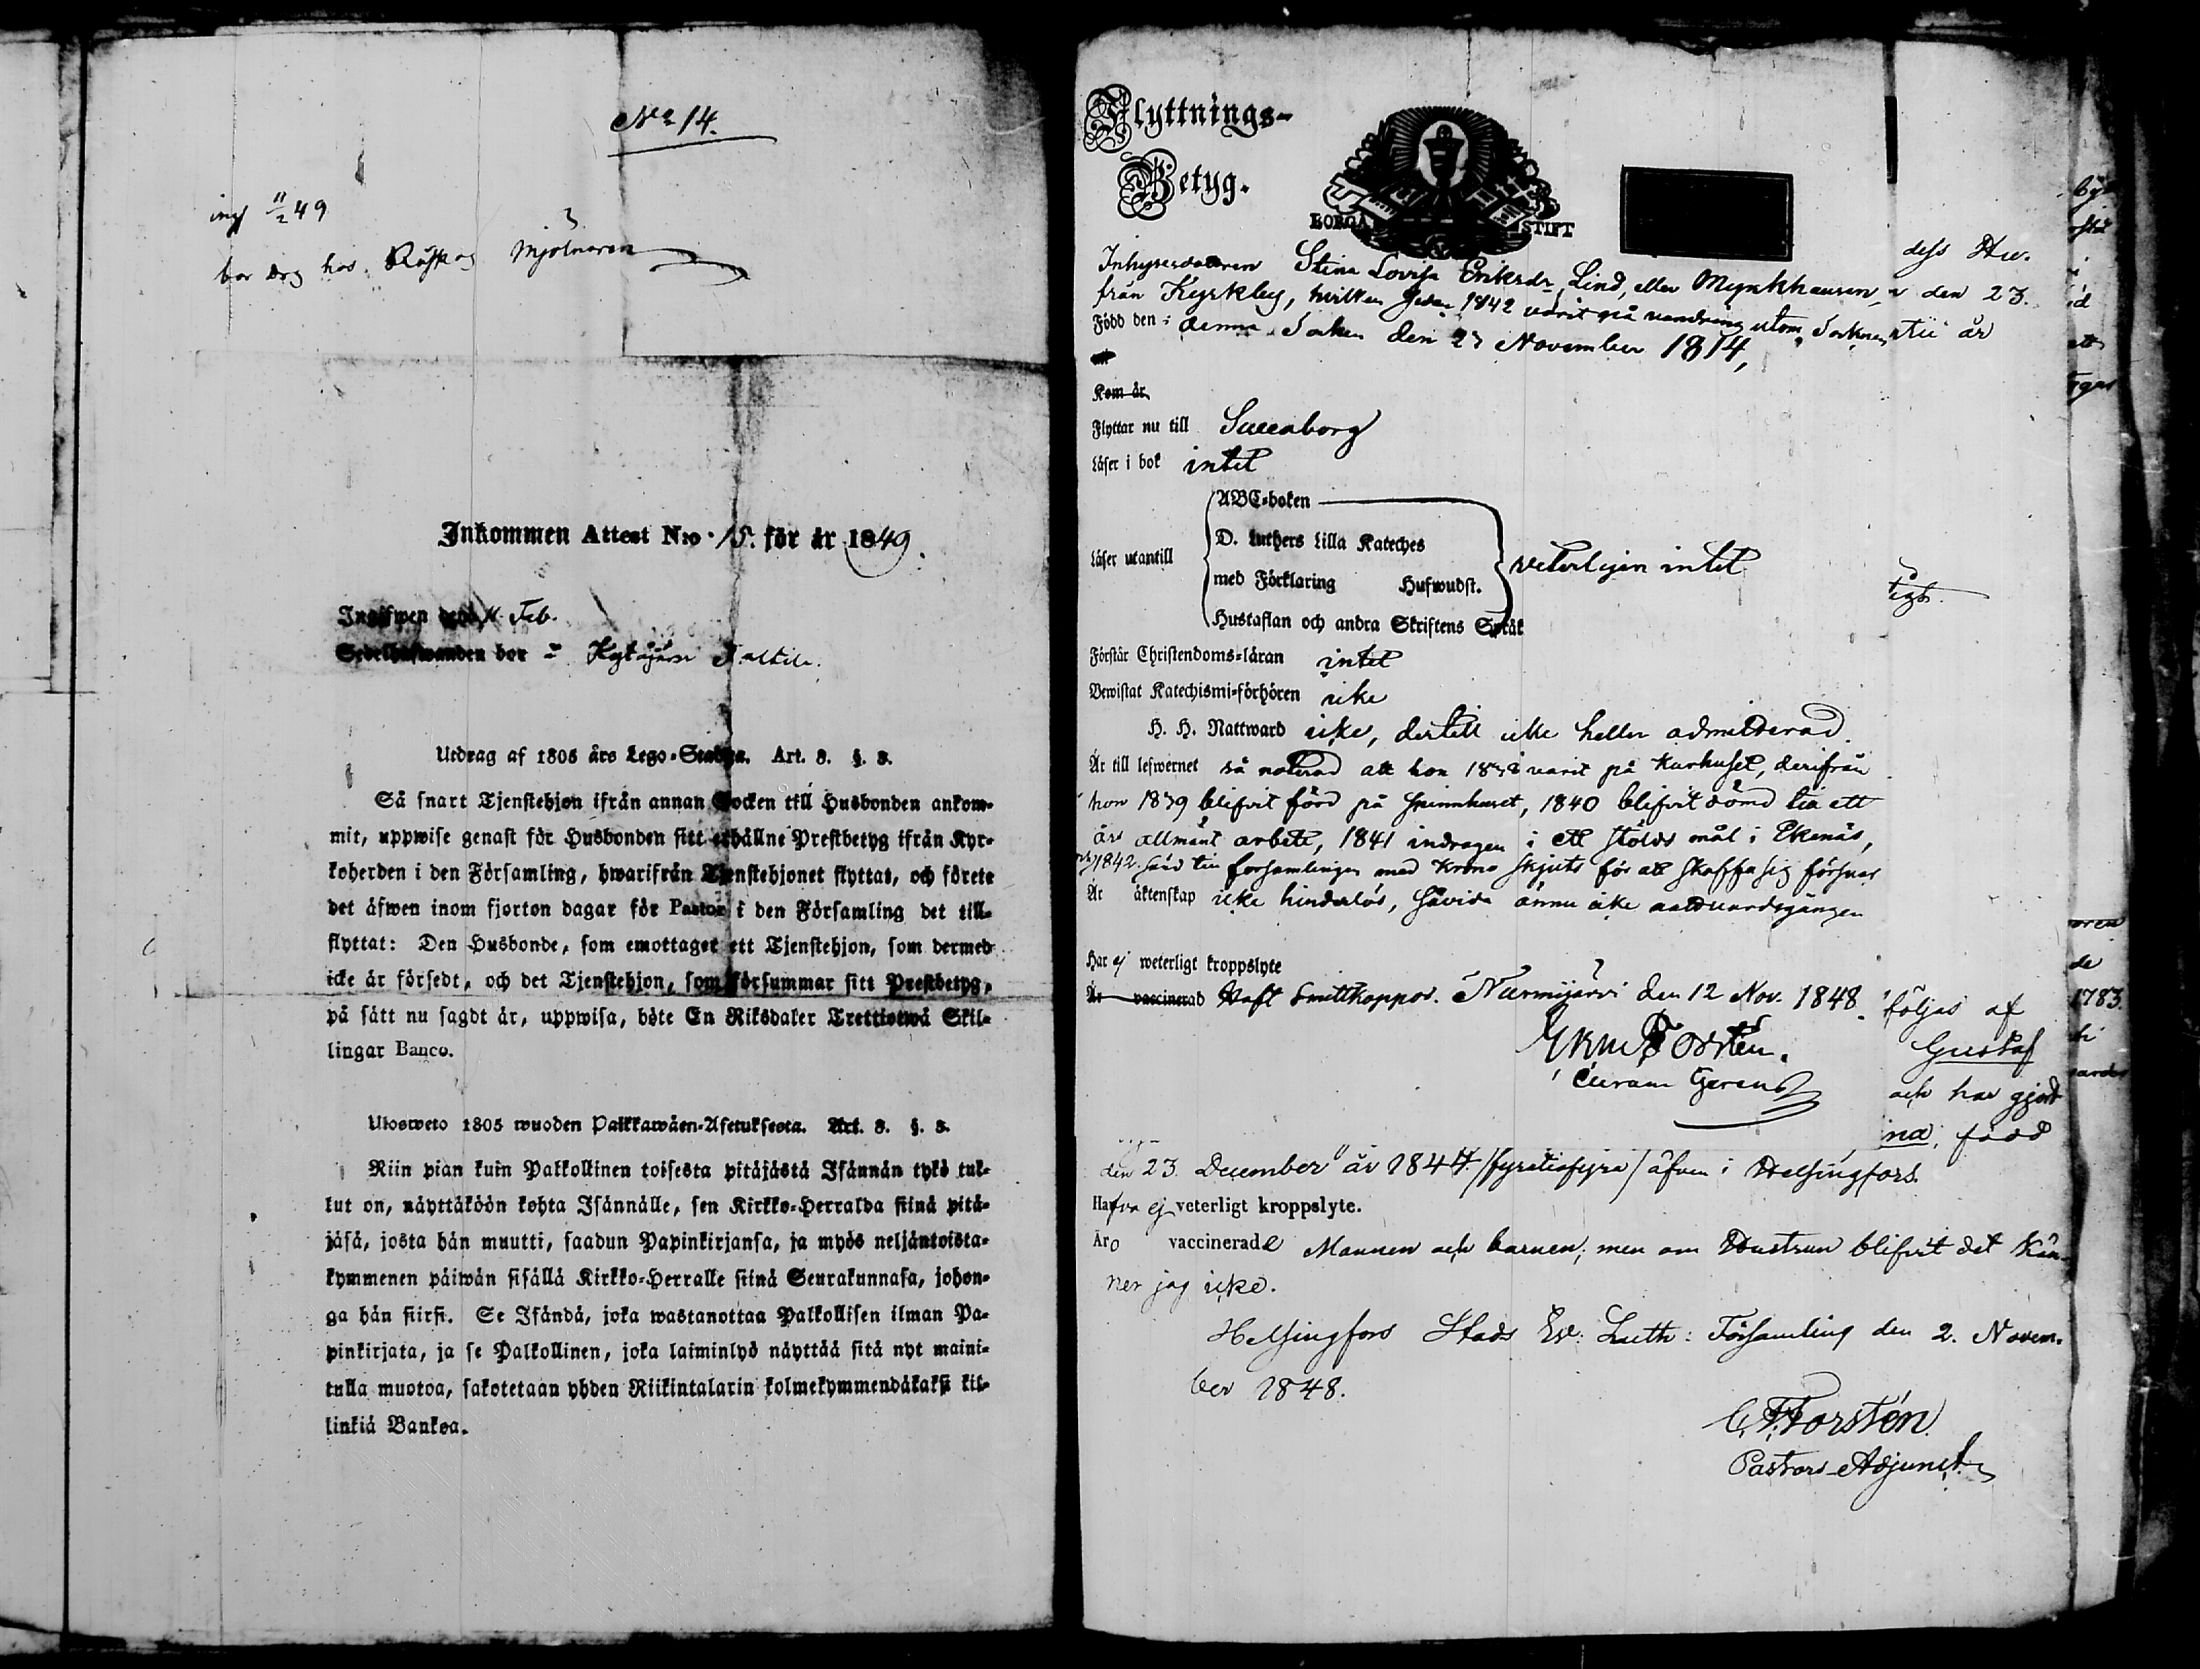 No 14.
ing 11/2 49
bor dog hos Mjölnaren
Inkommen Attest N:o 15. för år 1849.
Ingifwen den 11 Feb.
Sedelhafwanden bor i
Utdrag af 1805 års Lego-Stadga. Art. 8. §. 8.
Så snart Tjenstehjon ifrån annan Socken till Husbonden ankom-
mit, uppwise genast för Husbonden sitt erhållne Prestbetyg ifrån Kyr-
koherden i den Församling, hwarifrån Tjenstehjonet flyttat, och förete
det äfwen inom fjorton dagar för Pastor i den Församling det till-
flyttat: Den Husbonde, som emottaget ett Tjenstehjon, som dermed
icke är försedt, och det Tjenstehjon, som försummar sitt Prestbetyg,
på sätt nu sagdt är, uppwisa, böte En Riksdaler Trettiotwå Skil-
lingar Banco.
Ulosweto 1805 wuoden Palkkawäen-Asetuksesta. Art. 8. §. 8.
Niin pian kuin Palkollinen toisesta pitäjästä Isännän tykö tul-
lut on, näyttäköön kohta Isännälle, sen Kirkko-Herralda siinä pitä-
jäsä, josta hän muutti, saadun Papinkirjansa, ja myös neljäntoista-
kymmenen päiwän sisällä Kirkko-Herralle siinä Seurakunnasa, johon-
ga hän siirsi. Se Isändä, joka wastanottaa Palkollisen ilman Pa-
pinkirjata, ja se Palkollinen, joka laiminlyö näyttää sitä nyt maini-
tulla muotoa, sakotetaan yhden Riikintalarin kolmekymmendäkaksi kil-
linkiä Bankoa.
Flyttnings-
Betyg.
BORGÅ STIFT
Inhysesdottren Stina Lovisa Eriksdr Lind, eller Mynkhausen,
från Kyrkby, hvilken sedan 1842 varit på vandring utom Socknen
Född den i denna Socken den 23 November 1814,
Kom år
Flyttar nu till Sveaborg
Läser i bok intet
Läser utantill
ABC-boken
D. Luthers Lilla Kateches
med Förklaring Hufwudst.
Hustaflan och andra Skriftens Språk
veterligen intet
Förstår Christendoms-läran intet
Bewistat Katechismi-förhören icke
H. H. Nattward icke, dertill icke heller admitterad.
Är till lefwernet så noterad att hon 1838 varit på Kurhuset, derifrån
hon 1839 blifvit förd på spinnhuset, 1840 blifvit dömd till ett
års allmänt arbete, 1841 indragen i ett stölds mål i Ekenäs,
och 1842 förd till församlingen med Krono skjuts för att skaffa sig försvar
Är äktenskap icke hinderlös, såvida ännu icke nattvardsgången
Har ej weterligt kroppslyte
Är vaccinerad Haft Smittkoppor. Nurmijärvi den 12 Nov. 1848.
Forstén.
Curam Gerens
dess Hu-
den 23.
tii år
följas af
Gustaf
och har gjort
ina, född
1783.
den 23 December år 1844 /fyratiofyra/ äfven i Helsingfors.
Hafva ej veterligt kroppslyte.
Äro vaccinerade Mannen och barnen; men om Hustrun blifvit det kän-
ner jag icke.
Helsingfors Stads Ev: Luth: Församling den 2. Novem-
ber 1848.
Forstén
Pastors-Adjunct.